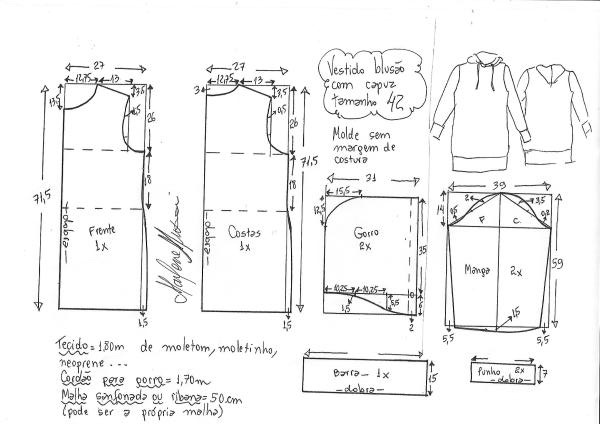 27
12,75
13
13,5
3,5
0,5
26
18
71,5
dobra
Frente
1x
1,5
27
12,75
13
3
3,5
0,5
26
18
71,5
dobra
Costas
1x
1,5
Marlene Mukai
Vestido blusão
com capuz
tamanho 42
Molde sem
margem de
costura
31
15,5
12,5
Gorro
2x
35
10,25
10,25
1,5
5,5
6
2
39
14
2
3,5
0,5
0,8
F
C
Manga
2x
59
1,5
5,5
5,5
Barra - 1x
- dobra -
15
Punho 2x
- dobra -
7
Tecido = 1,80m de moletom, moletinho,
neoprene ...
Cordão para gorro = 1,70m
Malha sanfonada ou ribana = 50cm
(pode ser a própria malha)